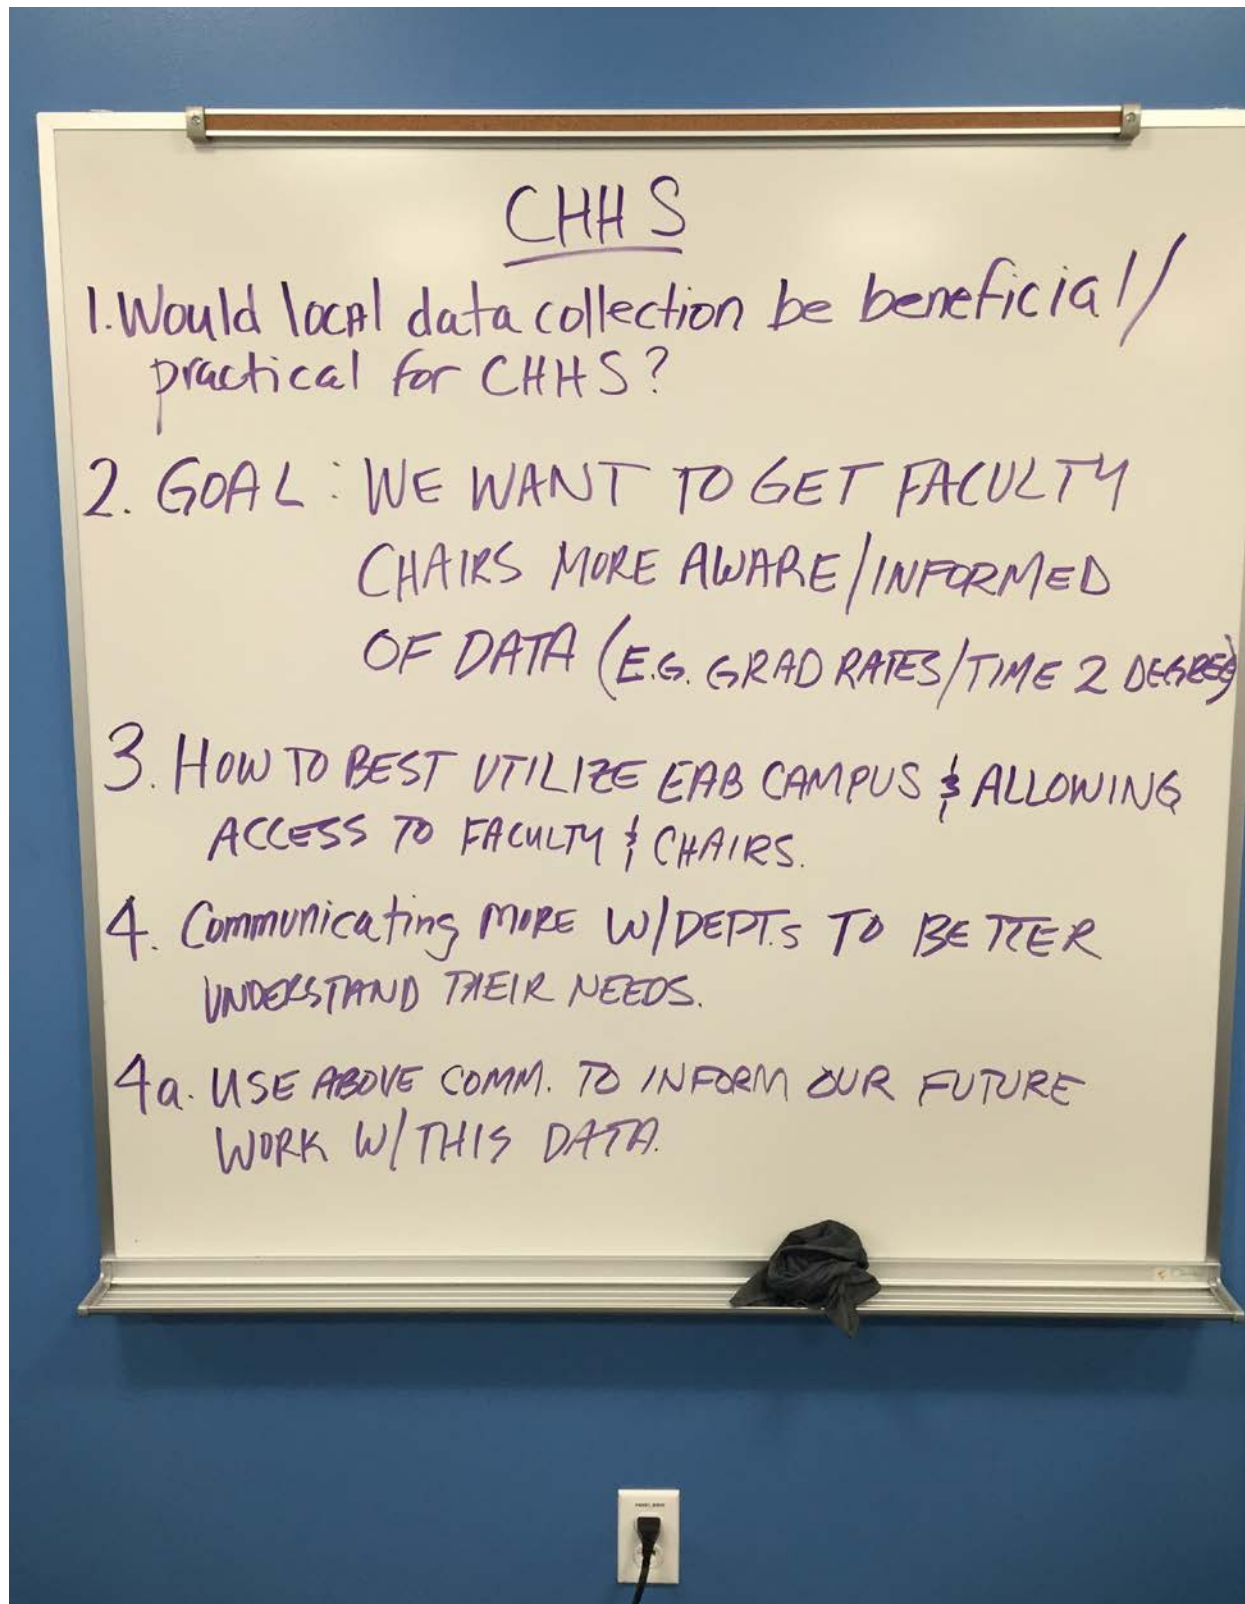 CHHS
1. Would local data collection be beneficial/
practical for CHHS?
2. GOAL: WE WANT TO GET FACULTY
CHAIRS MORE AWARE/INFORMED
OF DATA (E.G. GRAD RATES/TIME 2 DEGREE)
3. HOW TO BEST UTILIZE EAB CAMPUS & ALLOWING
ACCESS TO FACULTY & CHAIRS.
4. Communicating MORE W/DEPT.S TO BETTER
UNDERSTAND THEIR NEEDS.
4a. USE ABOVE COMM. TO INFORM OUR FUTURE
WORK W/THIS DATA.